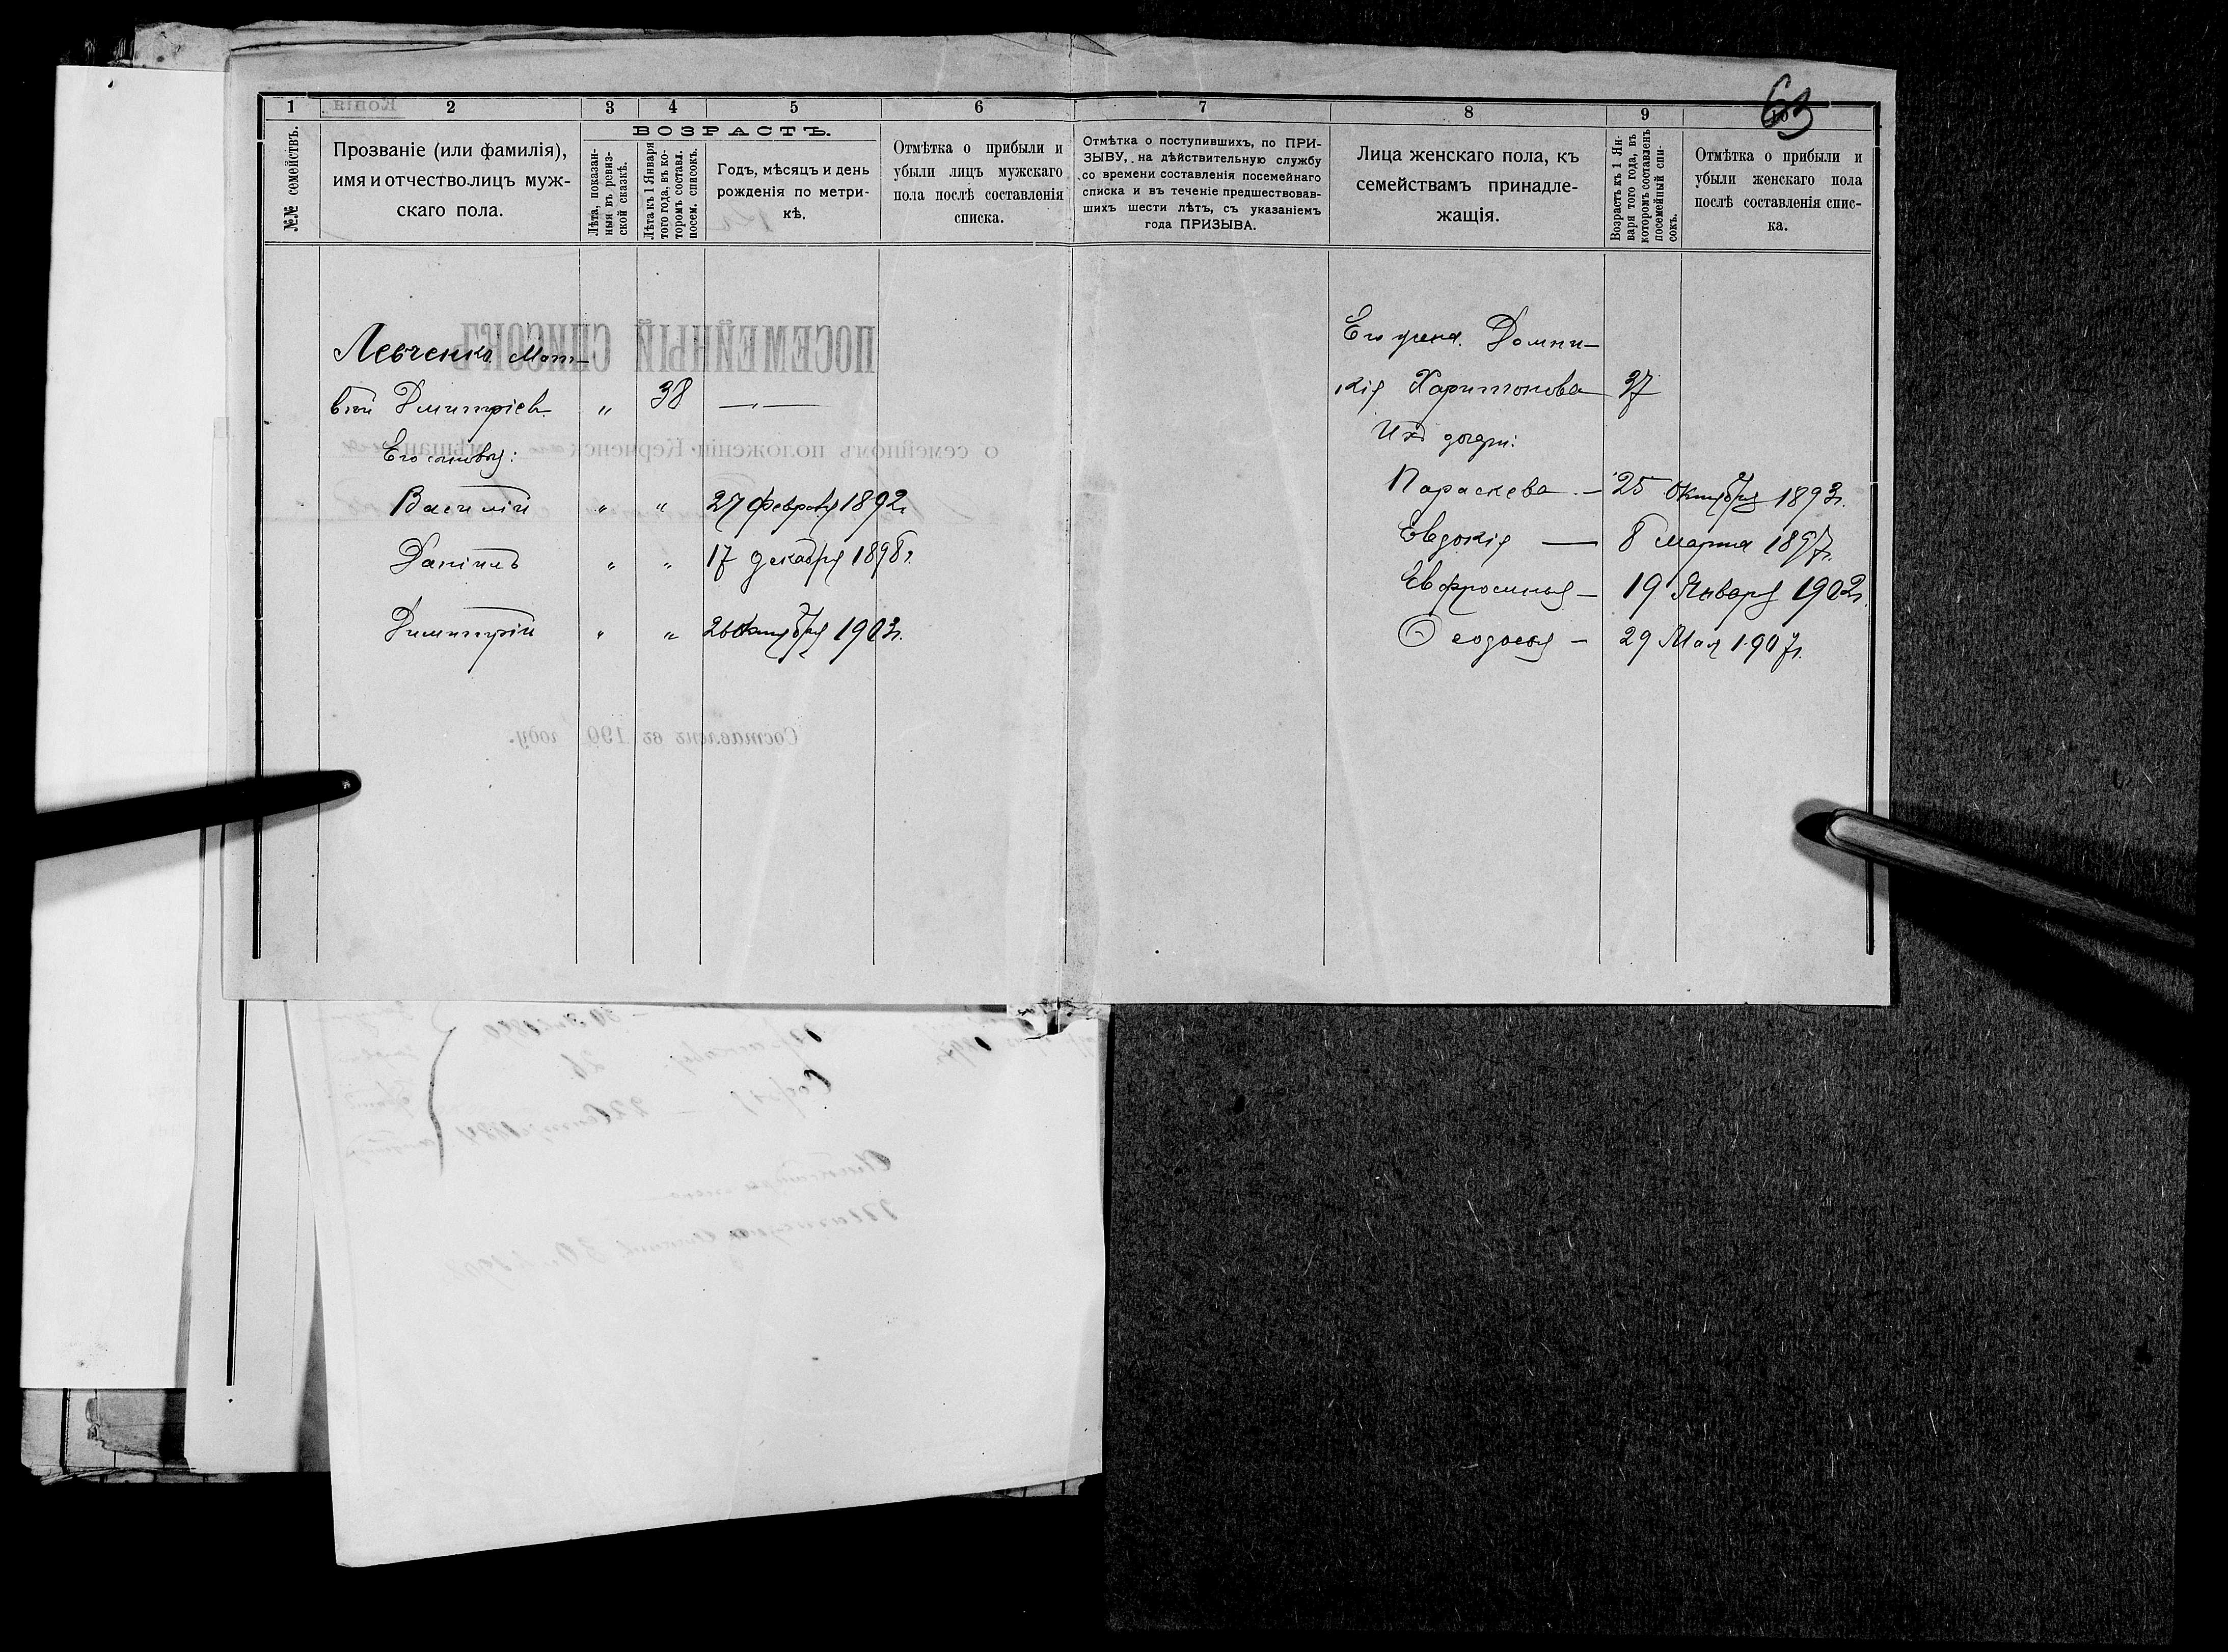 63
1 2 3 4 5 6 7 8 9
№№ семействъ.
Прозваніе (или фамилія),
имя и отчество лицъ муж-
скаго пола.
ВОЗРАСТЪ.
Лѣта, показан-
ныя въ ревиз-
ской сказкѣ.
Лѣта къ 1 Января
того года, въ ко-
торомъ составл.
посем. списокъ.
Годъ, мѣсяцъ и день
рожденія по метри-
кѣ.
Отмѣтка о прибыли и
убыли лицъ мужскаго
пола послѣ составленія
списка.
Отмѣтка о поступившихъ, по ПРИ-
ЗЫВУ, на дѣйствительную службу
со времени составленія посемейнаго
списка и въ теченіе предшествовав-
шихъ шести лѣтъ, съ указаніемъ
года ПРИЗЫВА.
Лица женскаго пола, къ
семействамъ принадле-
жащія.
Возрастъ къ 1 Ян-
варя того года, въ
которомъ составленъ
посемейный спи-
сокъ.
Отмѣтка о прибыли и
убыли женскаго пола
послѣ составленія спис-
ка.
Левченко Мат-
вѣй Дмитріев „ 38 —„—
Его сыновья:
Василій „ „ 27 февраля 1892г
Даніилъ „ „ 17 декабря 1898г.
Димитрій „ „ 26 октября 1903г.
Его жена Домни-
кія Харитонова 37
Ихъ дочери:
Параскева — 25 октября 1893г.
Евдокія — 8 марта 1897г.
Евфросинья — 19 Января 1902г.
Ѳеодосья — 29 Мая 1907г.
Копія
ПОСЕМЕЙНЫЙ СПИСОКЪ
о семейномъ положеніи Керченскаго мѣщанина
Составленъ въ 190 году.